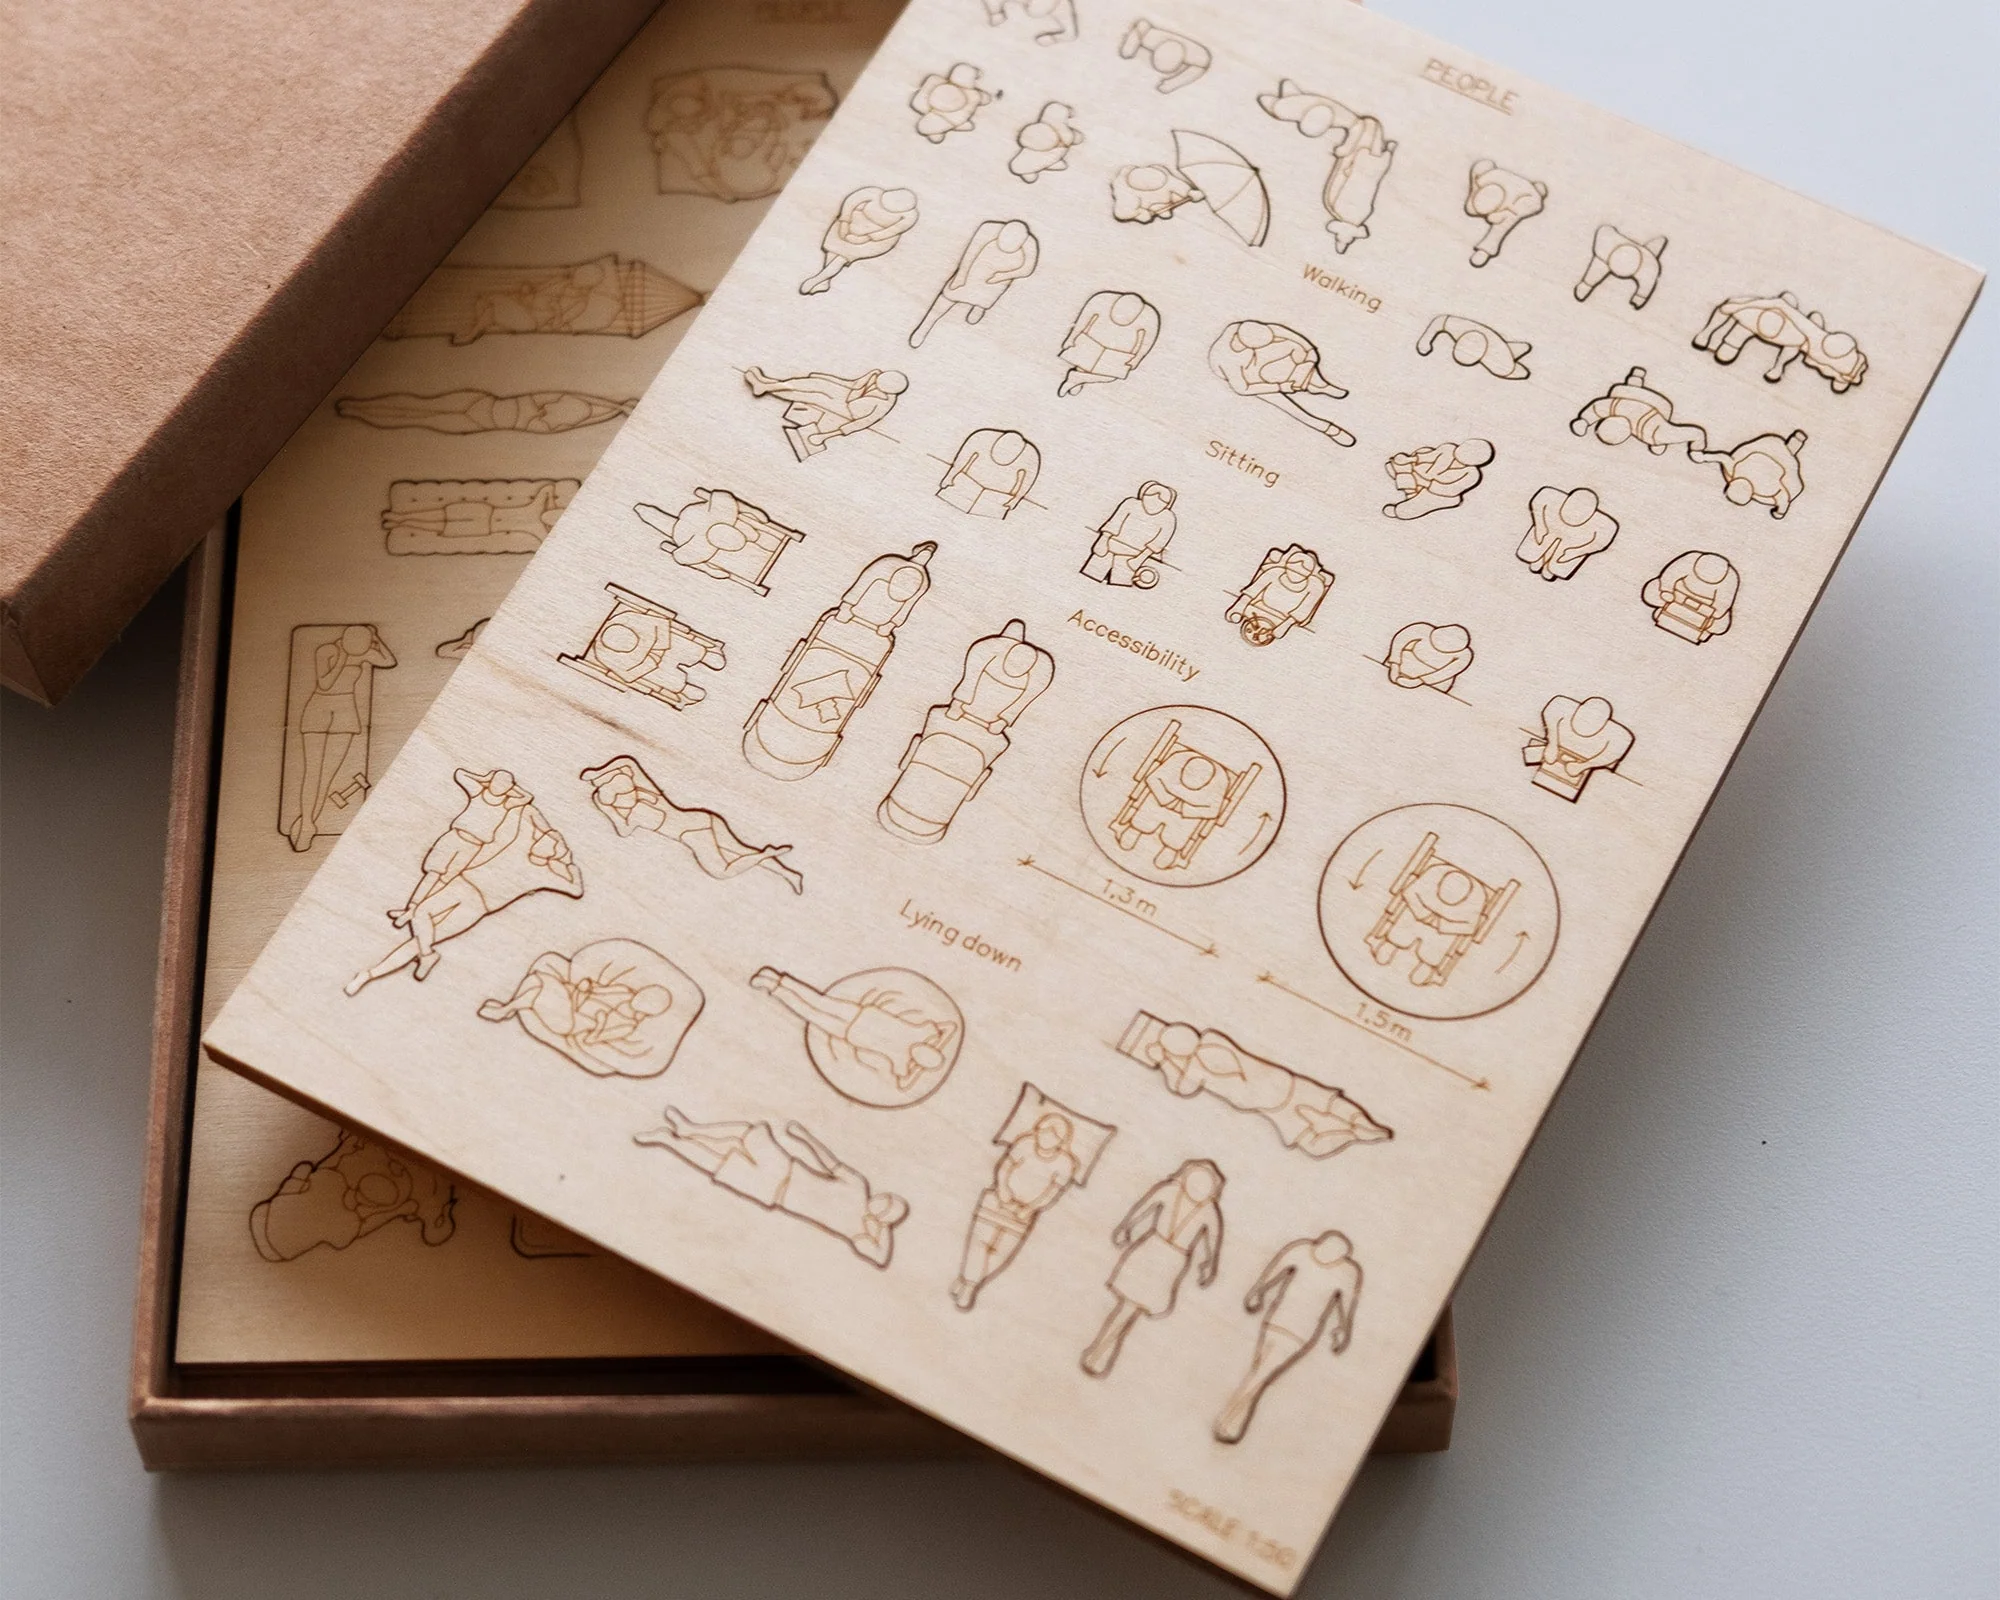 PEOPLE
PEOPLE
Walking
Sitting
Accessibility
1.3m
1.5m
Lying down
SCALE 1:50